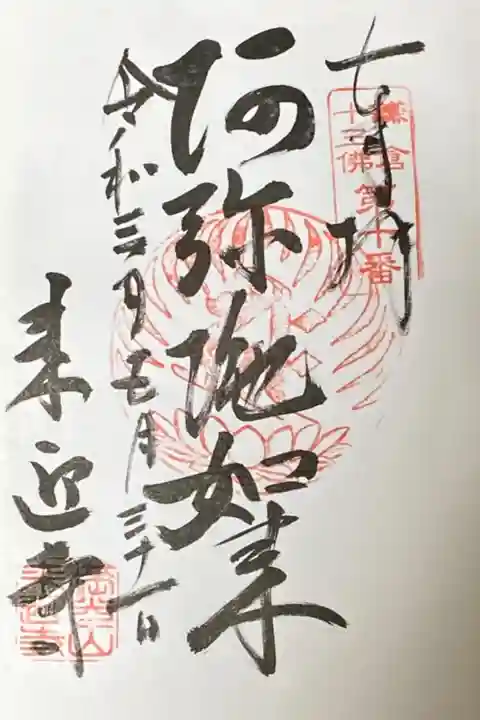 奉拝
鎌倉
十三佛
第十番
阿弥陀如来
令和三年七月三十一日
来迎寺